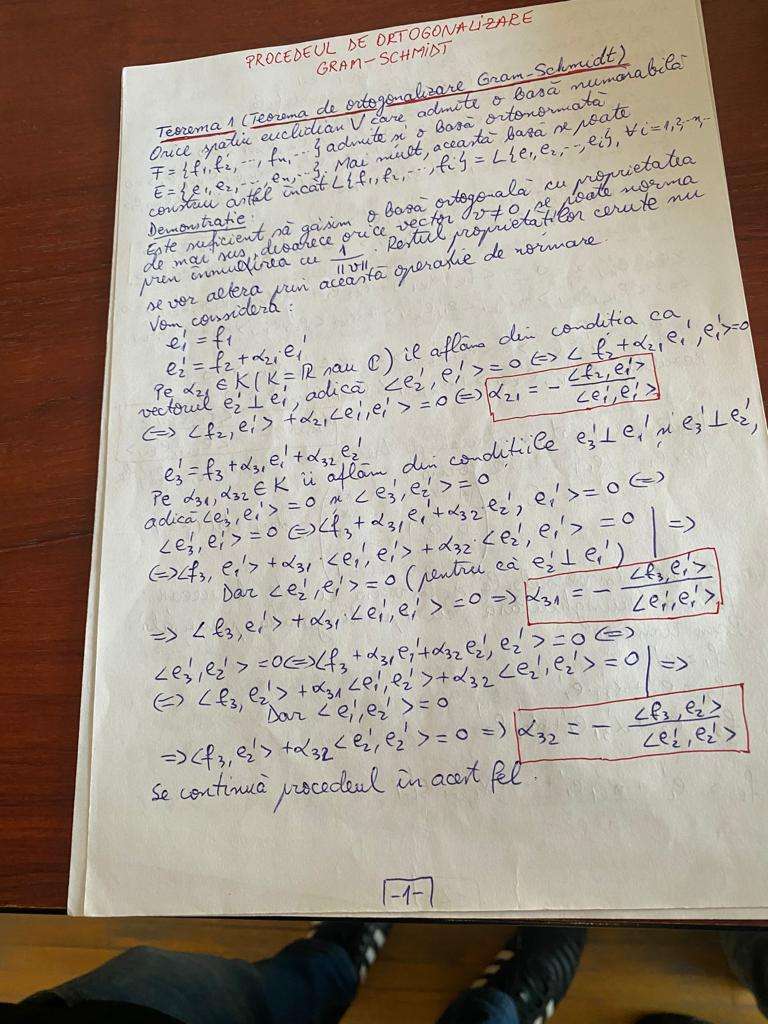 PROCEDEUL DE ORTOGONALIZARE
GRAM-SCHMIDT
Teorema 1 (Teorema de ortogonalizare Gram-Schmidt)
Orice spațiu euclidian V care admite o bază numărabilă
F = {f₁, f₂, ..., fₙ, ...} admite și o bază ortonormată
E = {e₁, e₂, ..., eₙ, ...}. Mai mult, această bază se poate
construi astfel încât L{f₁, f₂, ..., fᵢ} = L{e₁, e₂, ..., eᵢ}, ∀ i = 1, 2, ..., n, ...
Demonstrație:
Este suficient să găsim o bază ortogonală cu proprietatea
de mai sus, deoarece orice vector v ≠ 0, se poate norma
prin înmulțirea cu 1/||v||. Restul proprietăților cerute nu
se vor altera prin această operație de normare.
Vom considera:
e₁' = f₁
e₂' = f₂ + α₂₁ e₁'
Pe α₂₁ ∈ K (K = ℝ sau ℂ) îl aflăm din condiția ca
vectorul e₂' ⊥ e₁', adică <e₂', e₁'> = 0 <=> <f₂ + α₂₁ e₁', e₁'> = 0
<=> <f₂, e₁'> + α₂₁ <e₁', e₁'> = 0 <=> α₂₁ = - <f₂, e₁'> / <e₁', e₁'>
e₃' = f₃ + α₃₁ e₁' + α₃₂ e₂'
Pe α₃₁, α₃₂ ∈ K îi aflăm din condițiile e₃' ⊥ e₁' și e₃' ⊥ e₂',
adică <e₃', e₁'> = 0 și <e₃', e₂'> = 0
<e₃', e₁'> = 0 <=> <f₃ + α₃₁ e₁' + α₃₂ e₂', e₁'> = 0 <=>
<=> <f₃, e₁'> + α₃₁ · <e₁', e₁'> + α₃₂ · <e₂', e₁'> = 0 | =>
Dar <e₂', e₁'> = 0 (pentru că e₂' ⊥ e₁')
=> <f₃, e₁'> + α₃₁ · <e₁', e₁'> = 0 => α₃₁ = - <f₃, e₁'> / <e₁', e₁'>
<e₃', e₂'> = 0 <=> <f₃ + α₃₁ e₁' + α₃₂ e₂', e₂'> = 0 <=>
<=> <f₃, e₂'> + α₃₁ <e₁', e₂'> + α₃₂ <e₂', e₂'> = 0 | =>
Dar <e₁', e₂'> = 0
=> <f₃, e₂'> + α₃₂ <e₂', e₂'> = 0 => α₃₂ = - <f₃, e₂'> / <e₂', e₂'>
Se continuă procedeul în acest fel.
-1-